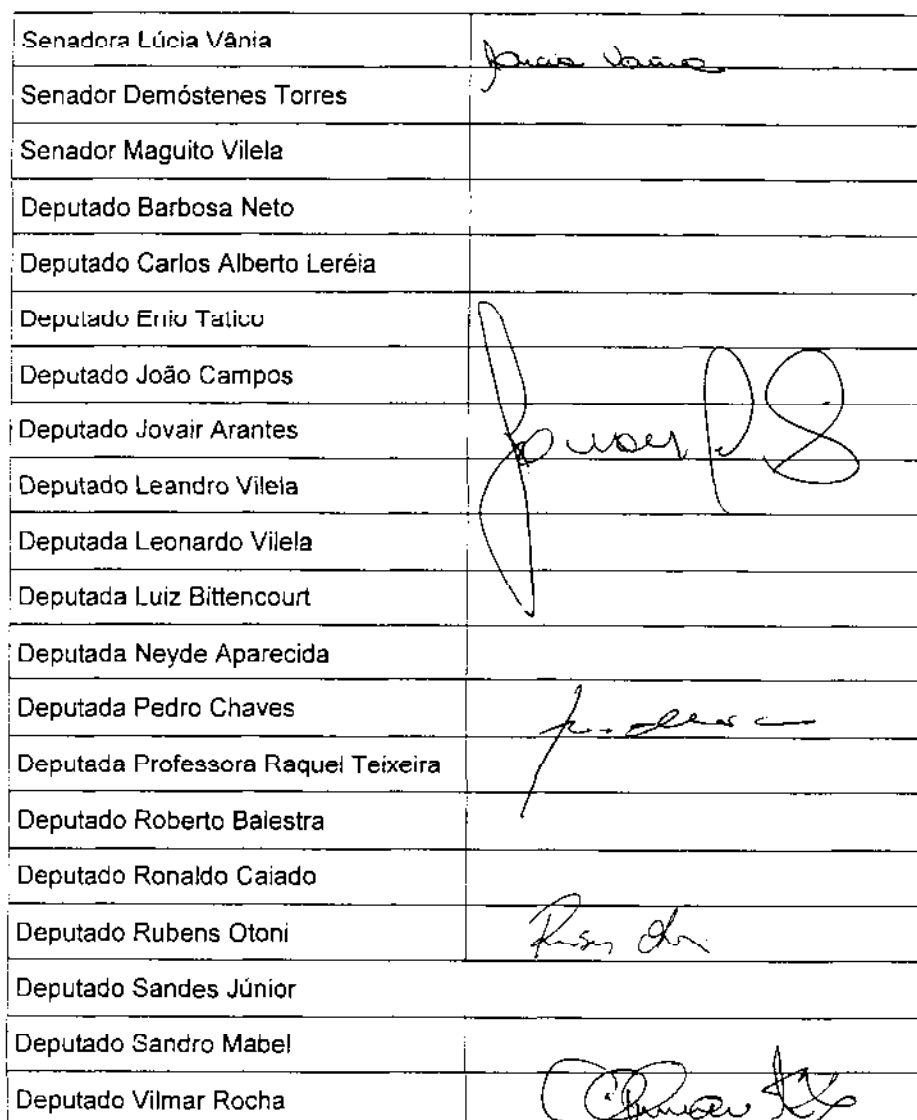 Senadora Lúcia Vânia
Lucia Vania
Senador Demóstenes Torres
Senador Maguito Vilela
Deputado Barbosa Neto
Deputado Carlos Alberto Leréia
Deputado Enio Tatico
Deputado João Campos
Deputado Jovair Arantes
Deputado Leandro Vilela
Deputada Leonardo Vilela
Deputada Luiz Bittencourt
Deputada Neyde Aparecida
Deputada Pedro Chaves
Deputada Professora Raquel Teixeira
Deputado Roberto Balestra
Deputado Ronaldo Caiado
Deputado Rubens Otoni
Deputado Sandes Júnior
Deputado Sandro Mabel
Deputado Vilmar Rocha